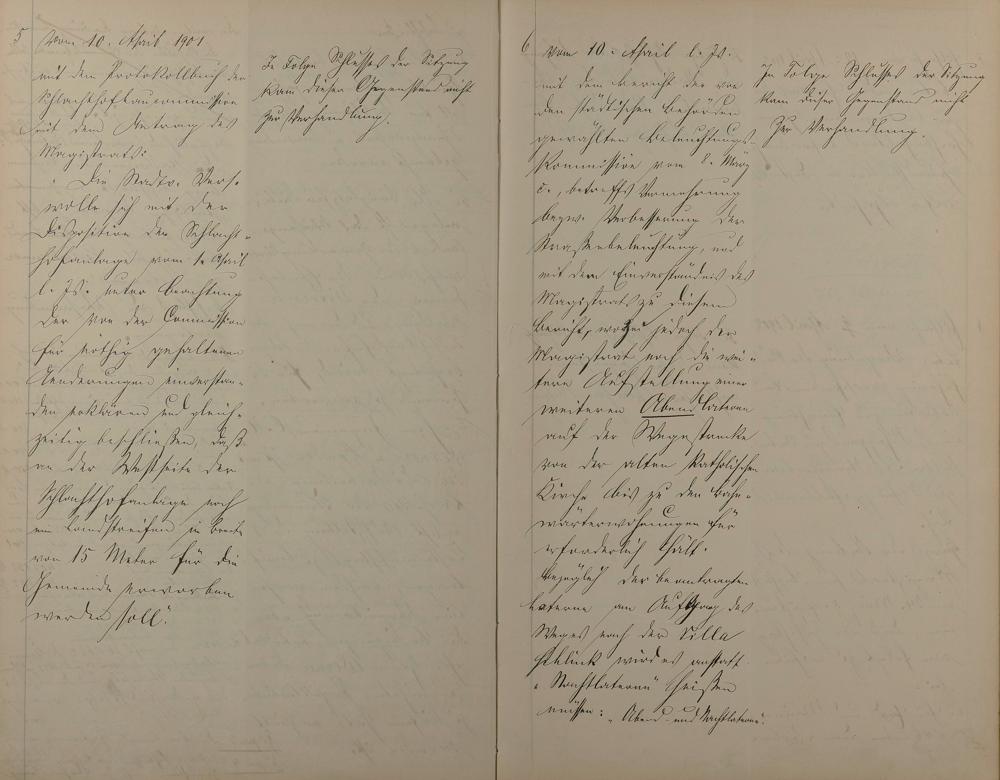 5
Vom 10. April 1901
mit dem Protokollbuch der
Schlachthofbaucommission
mit dem Antrag des
Magistrats:
"Die Stadtv. Vers.
wolle sich mit der
Disposition der Schlacht-
hofanlage vom 1. April
l. Js. unter Beachtung
der von der Commission
für nöthig gehaltenen
Aenderungen einverstan-
den erklären und gleich-
zeitig beschließen, daß
an der Westseite der
Schlachthofanlage noch
ein Landstreifen in Breite
von 15 Meter für die
Gemeinde erworben
werden soll."
In Folge Schlusses der Sitzung
kam dieser Gegenstand nicht
zur Verhandlung.
6
Vom 10. April l. Js.
mit dem Bericht der von
den städtischen Behörden
gewählten Beleuchtungs-
Kommission vom 8. März
betreffs Vermehrung
bezw. Verbesserung der
Straßenbeleuchtung, und
mit dem Einverständnis des
Magistrats zu diesem
Bericht, wobei jedoch der
Magistrat noch die wei-
tere Aufstellung einer
weiteren Abendlaterne
auf der Wegestrecke
von der alten katholischen
Kirche bis zu den Bahn-
wärterwohnungen für
erforderlich hält.
Bezüglich der beantragten
Laterne am Aufgang des
Weges nach der Villa
wird es anstatt
"Nachtlaterne" heißen
müssen: "Abend- und Nachtlaterne".
In Folge Schlusses der Sitzung
kam dieser Gegenstand nicht
zur Verhandlung.